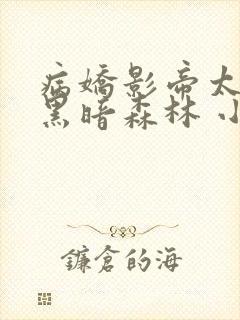 病嬌影帝太
黑暗森林 小
鐮倉的海